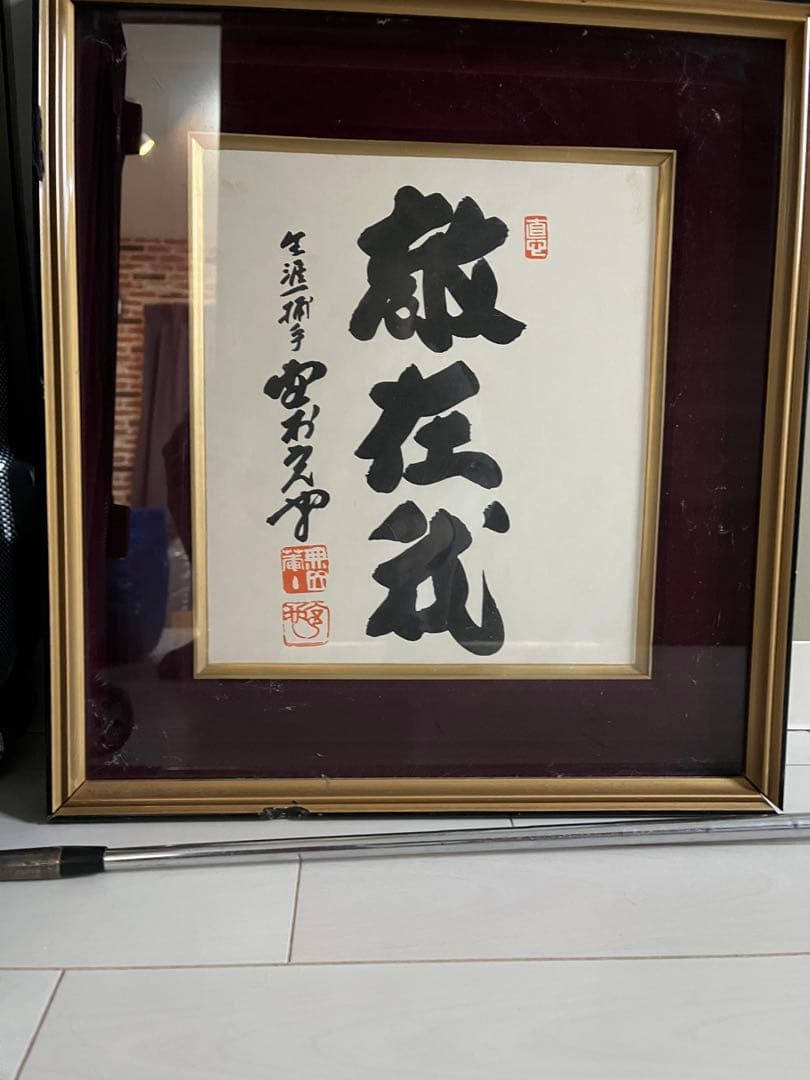 敵在我
生涯一捕手 野村克也